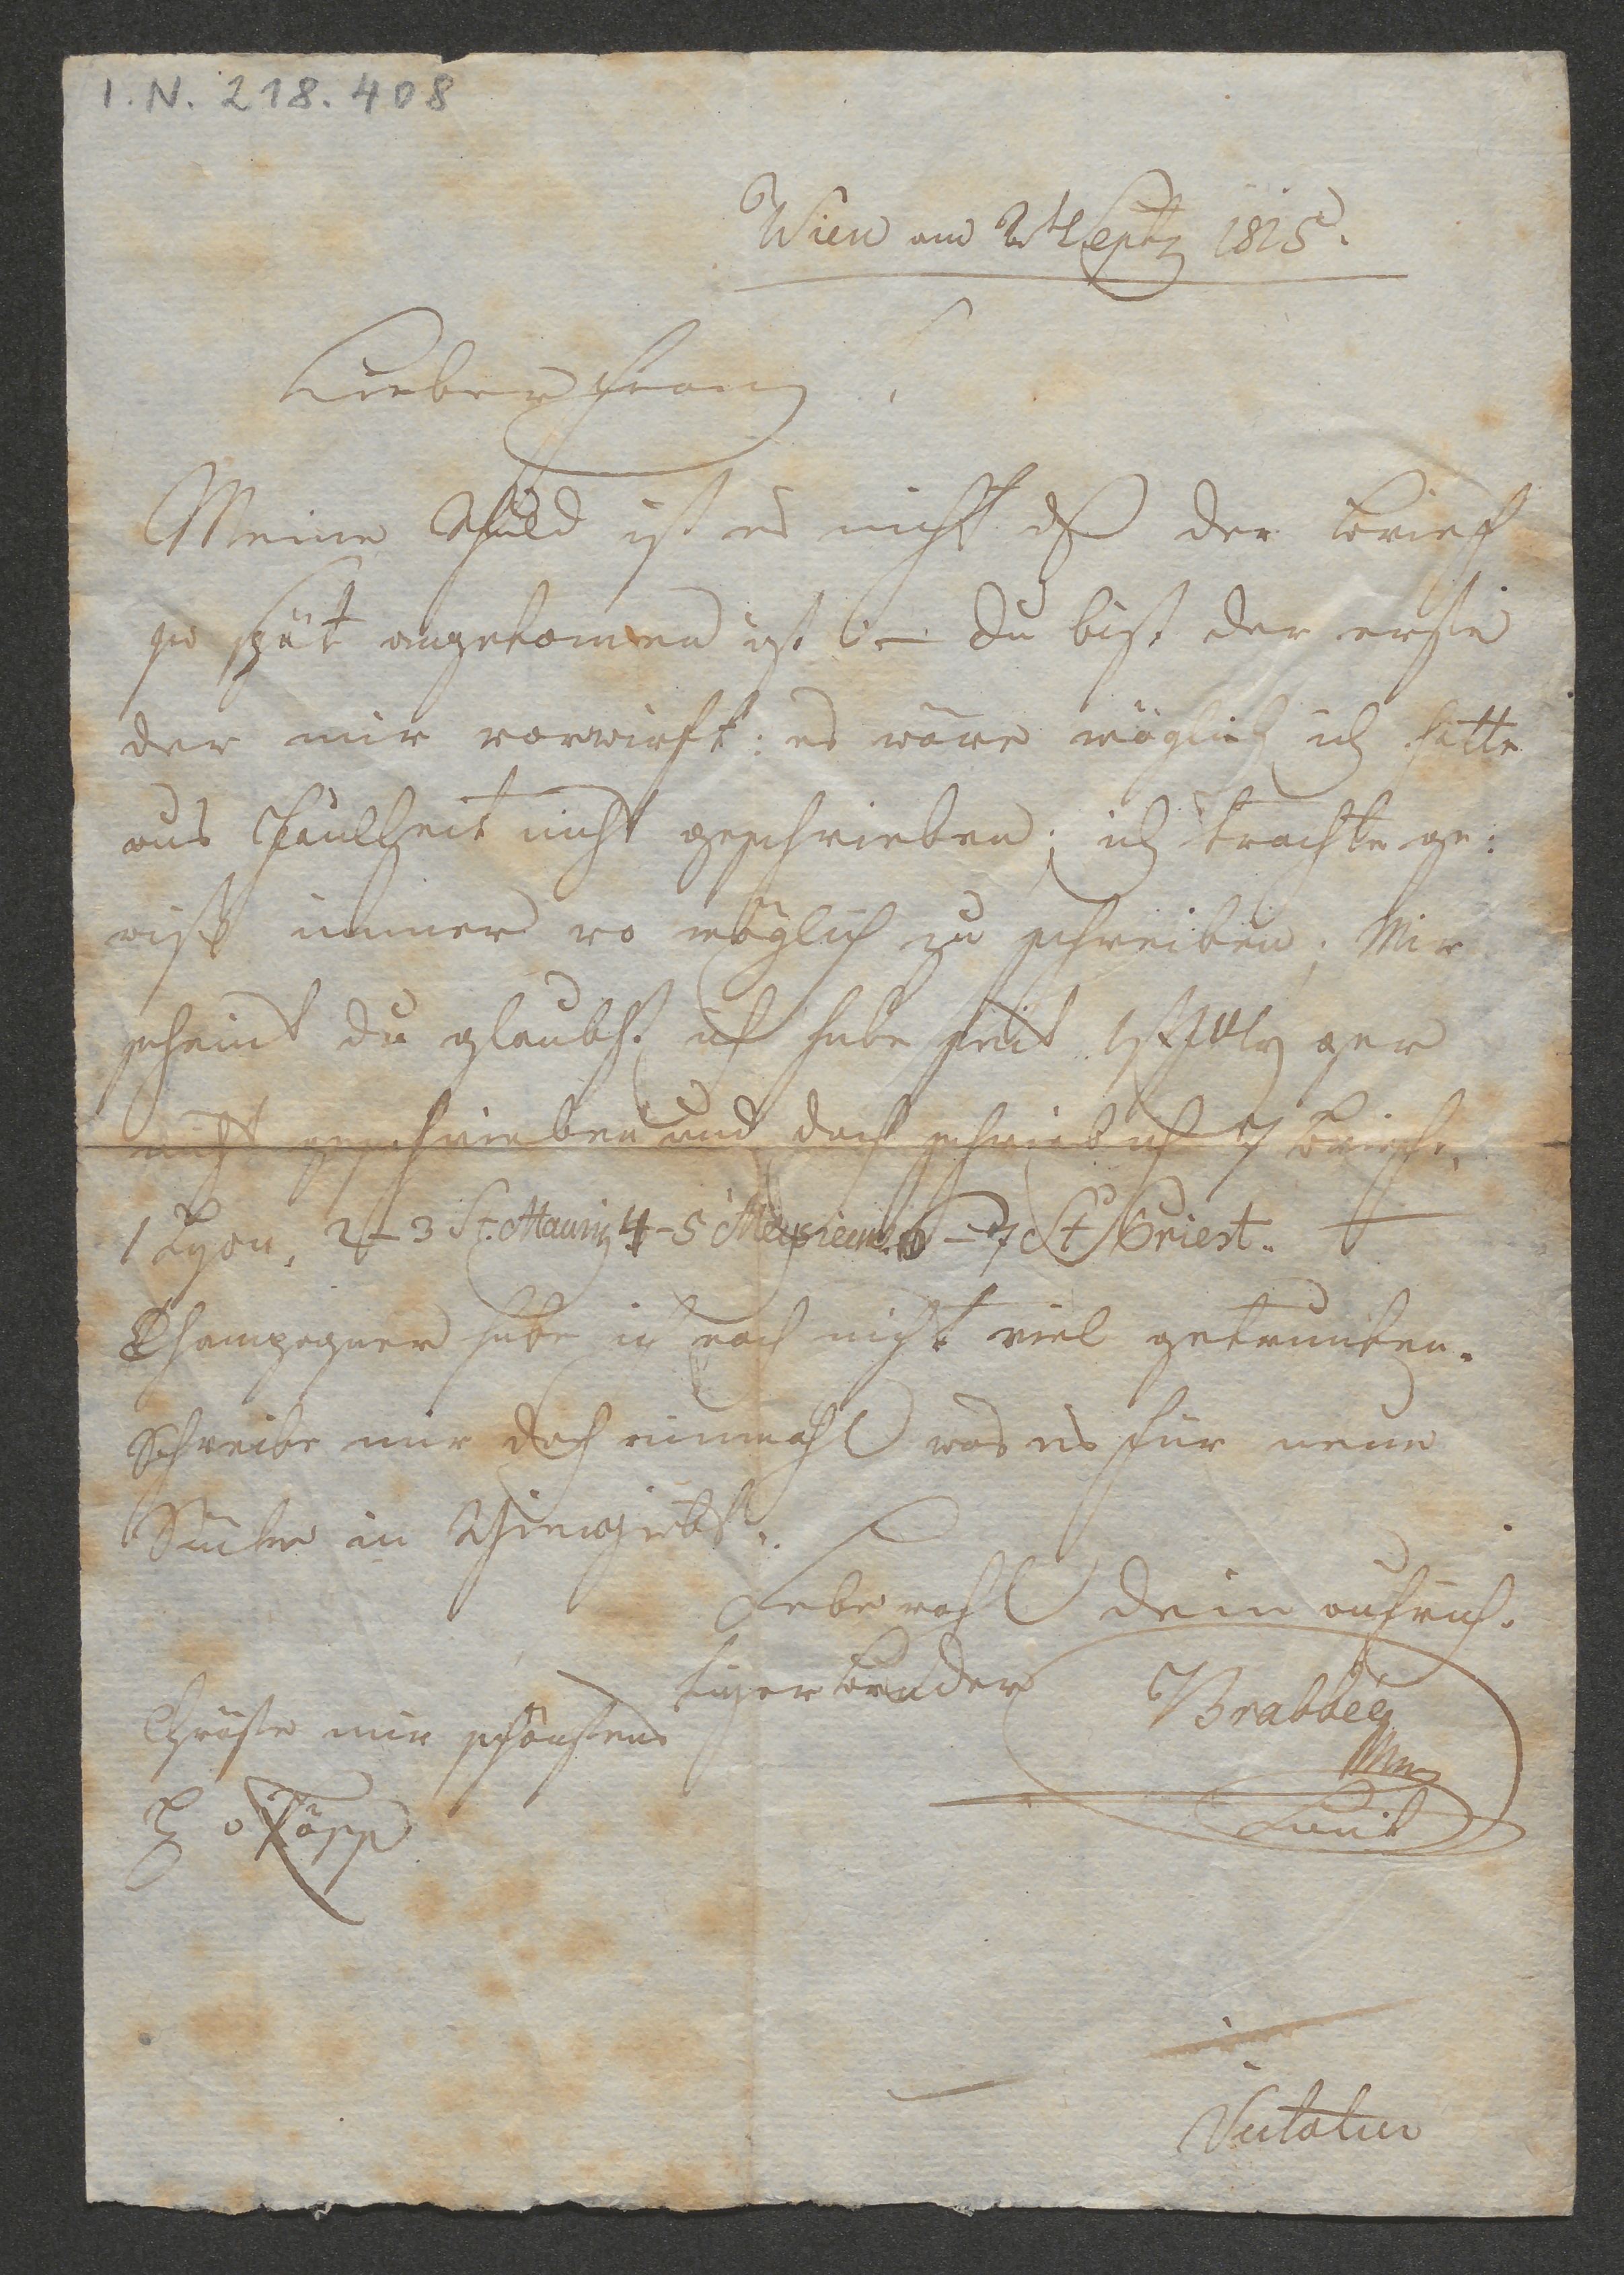 I. N. 218.408
Wien am 2t Septz 1815.
Lieber Franz
Meine Schuld ist es nicht dß der Brief
so spät angekommen ist – Du bist der erste
der mir vorwirft: es wäre möglich ich hätte
aus Faulheit nicht geschrieben; ich trachte ge:
wiß immer wo möglich zu schreiben; Mir
scheint du glaubst ich habe seit July gar
nicht geschrieben und doch schrieb ich 7 Briefe.
1 Lyon, 2–3 St. Mauriz 4–5 Meysieux 6–7 St Priest. –
Champagner habe ich noch nicht viel getrunken.
Schreibe mir doch einmahl was es für neue
Stücke in Wien giebt.
Lebe wohl Dein aufrich.
tiger Bruder Brabbée
Grüße mir schönstens
Lnit
H v Köpp